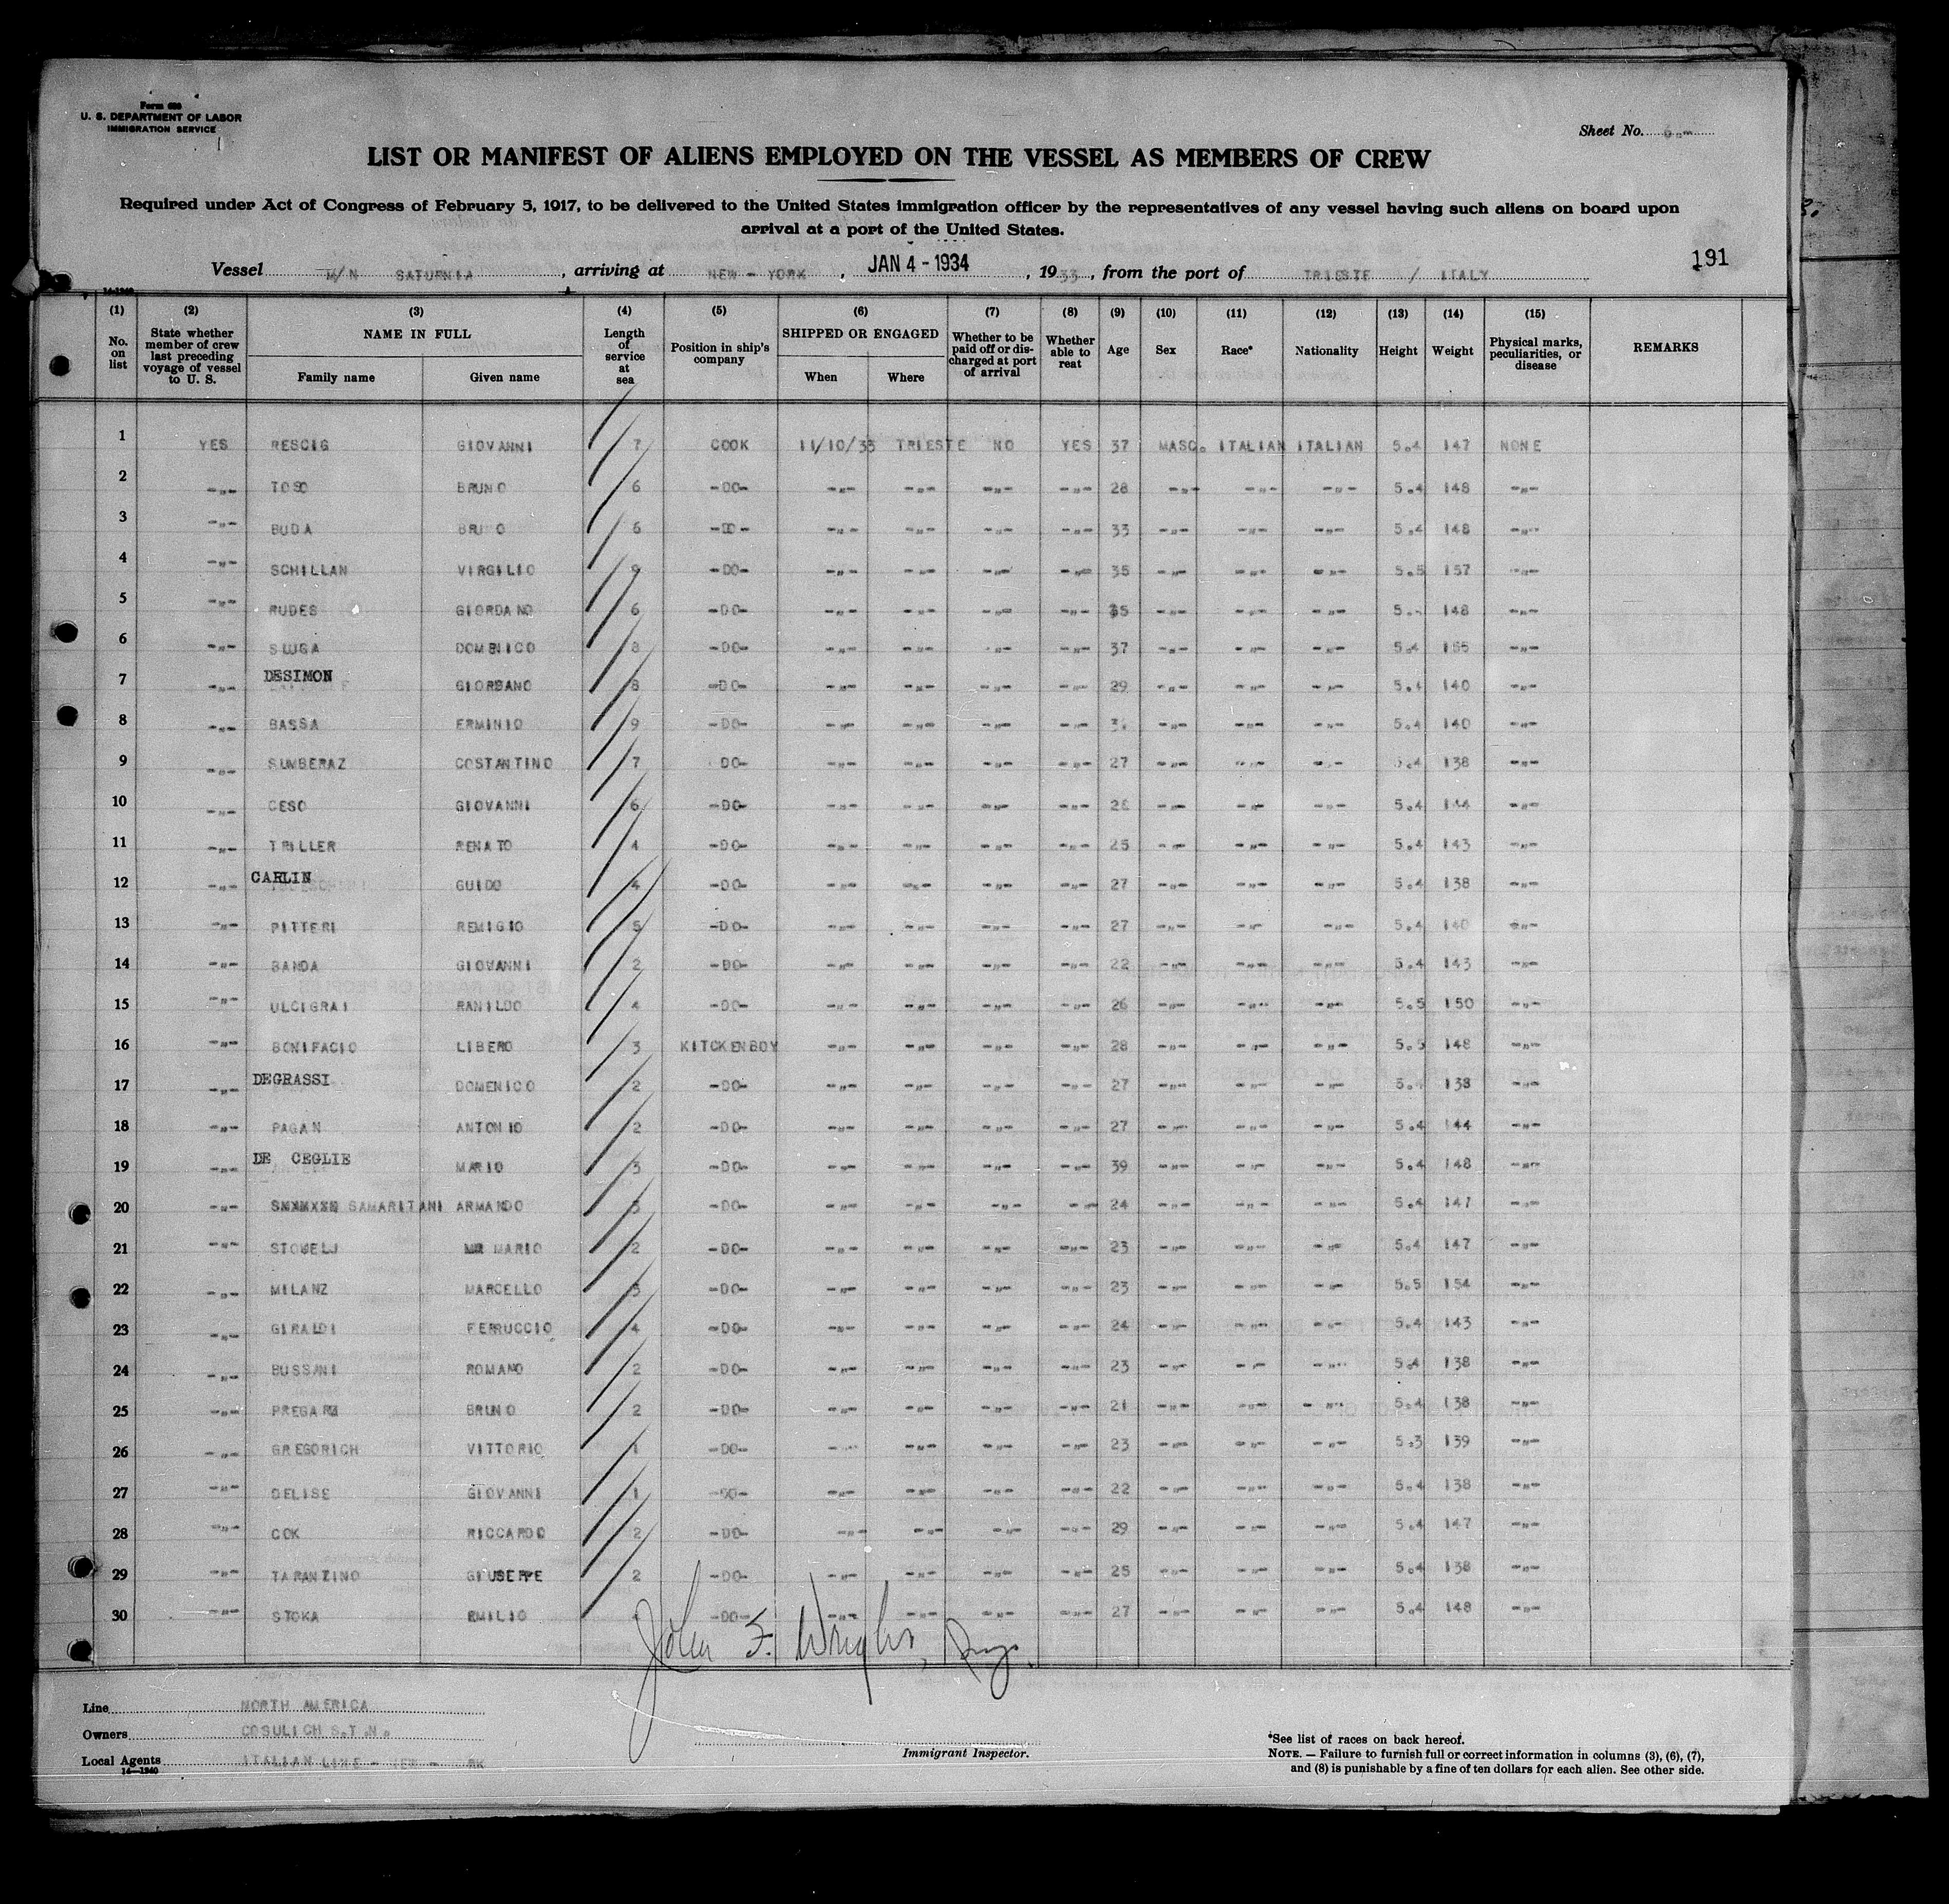 Form 680
U. S. DEPARTMENT OF LABOR
IMMIGRATION SERVICE
Sheet No.
LIST OR MANIFEST OF ALIENS EMPLOYED ON THE VESSEL AS MEMBERS OF CREW
Required under Act of Congress of February 5, 1917, to be delivered to the United States immigration officer by the representatives of any vessel having such aliens on board upon
arrival at a port of the United States.
191
Vessel M/N SATURNIA , arriving at NEW - YORK , JAN 4 - 1934 , 1933 , from the port of TRIESTE / ITALY
(1) (2) (3) (4) (5) (6) (7) (8) (9) (10) (11) (12) (13) (14) (15)
No. on list State whether member of crew last preceding voyage of vessel to U. S. NAME IN FULL Family name Given name Length of service at sea Position in ship's company SHIPPED OR ENGAGED When Where Whether to be paid off or discharged at port of arrival Whether able to read Age Sex Race* Nationality Height Weight Physical marks, peculiarities, or disease REMARKS
1 YES RESCIG GIOVANNI 7 COOK 11/10/33 TRIESTE NO YES 37 MASC. ITALIAN ITALIAN 5.4 147 NONE
2 -"- TOSO BRUNO 6 -DO- -"- -"- -"- -"- 28 -"- -"- -"- 5.4 148 -"-
3 -"- BUDA BRU O 6 -DO- -"- -"- -"- -"- 33 -"- -"- -"- 5.4 148 -"-
4 -"- SCHILLAN VIRGILIO 9 -DO- -"- -"- -"- -"- 35 -"- -"- -"- 5.5 157 -"-
5 -"- RUDES GIORDANO 6 -DO- -"- -"- -"- -"- 35 -"- -"- -"- 5.- 148 -"-
6 -"- SLUGA DOMENICO 8 -DO- -"- -"- -"- -"- 37 -"- -"- -"- 5.4 155 -"-
7 -"- DESIMON GIORDANO 8 -DO- -"- -"- -"- -"- 29 -"- -"- -"- 5.4 140 -"-
8 -"- BASSA ERMINIO 9 -DO- -"- -"- -"- -"- -"- -"- -"- 5.4 140 -"-
9 -"- SUMBERAZ COSTANTINO 7 -DO- -"- -"- -"- -"- 27 -"- -"- -"- 5.4 138 -"-
10 -"- CESO GIOVANNI 6 -DO- -"- -"- -"- -"- 26 -"- -"- -"- 5.4 144 -"-
11 -"- TRILLER RENATO 4 -DO- -"- -"- -"- -"- 25 -"- -"- -"- 5.4 143 -"-
12 -"- CARLIN GUIDO 4 -DO- -"- -"- -"- -"- 27 -"- -"- -"- 5.4 138 -"-
13 -"- PITTERI REMIGIO 5 -DO- -"- -"- -"- -"- 27 -"- -"- -"- 5.4 140 -"-
14 -"- BANDA GIOVANNI 2 -DO- -"- -"- -"- -"- 22 -"- -"- -"- 5.4 143 -"-
15 -"- ULCIGRAI RANILDO 4 -DO- -"- -"- -"- -"- 26 -"- -"- -"- 5.5 150 -"-
16 -"- BONIFACIO LIBERO 3 KITCKENBOY -"- -"- -"- -"- 28 -"- -"- -"- 5.5 148 -"-
17 -"- DEGRASSI DOMENICO 2 -DO- -"- -"- -"- -"- 27 -"- -"- -"- 5.4 138 -"-
18 -"- PAGAN ANTONIO 2 -DO- -"- -"- -"- -"- 27 -"- -"- -"- 5.4 144 -"-
19 -"- DE CEGLIE MARIO 3 -DO- -"- -"- -"- -"- 39 -"- -"- -"- 5.4 148 -"-
20 -"- SAMARITANI ARMANDO 3 -DO- -"- -"- -"- -"- 24 -"- -"- -"- 5.4 147 -"-
21 -"- STOWELJ MARIO 2 -DO- -"- -"- -"- -"- 23 -"- -"- -"- 5.4 147 -"-
22 -"- MILANZ MARCELLO 3 -DO- -"- -"- -"- -"- 23 -"- -"- -"- 5.5 154 -"-
23 -"- GIRALDI FERRUCCIO 4 -DO- -"- -"- -"- -"- 24 -"- -"- -"- 5.4 143 -"-
24 -"- BUSSANI ROMANO 2 -DO- -"- -"- -"- -"- 23 -"- -"- -"- 5.4 138 -"-
25 -"- PREGARZ BRUNO 2 -DO- -"- -"- -"- -"- 21 -"- -"- -"- 5.4 138 -"-
26 -"- GREGORICH VITTORIO 1 -DO- -"- -"- -"- -"- 23 -"- -"- -"- 5.3 139 -"-
27 -"- DELISE GIOVANNI 1 -DO- -"- -"- -"- -"- 22 -"- -"- -"- 5.4 138 -"-
28 -"- COK RICCARDO 2 -DO- -"- -"- -"- -"- 29 -"- -"- -"- 5.4 147 -"-
29 -"- TARANTINO GIUSEPPE 2 -DO- -"- -"- -"- -"- 25 -"- -"- -"- 5.4 138 -"-
30 -"- STOKA EMILIO -DO- -"- -"- -"- -"- 27 -"- -"- -"- 5.4 148 -"-
John F. Wright,
Line NORTH AMERICA
Owners COSULICH S.T.N.
Local Agents ITALIAN LINE - NEW - YORK
14—1240
Immigrant Inspector.
*See list of races on back hereof.
NOTE. — Failure to furnish full or correct information in columns (3), (6), (7),
and (8) is punishable by a fine of ten dollars for each alien. See other side.